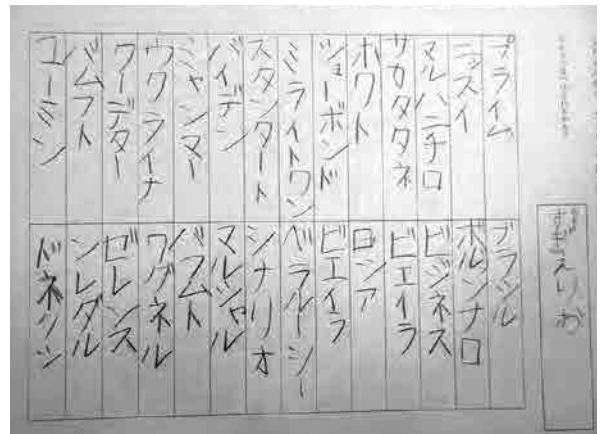 すぎえりか
プライム
ニッスイ
マルハニチロ
サカタタネ
ホクト
ショーボンド
ミライトワン
スタンタート
バイデン
ミャンマー
ウクライナ
クーデター
バムフト
ユーミン
ブラジル
ボルソナロ
ビジネス
ビエイラ
ロシア
ビエイラ
ベラルーシー
シナリオ
マルシャル
バフムト
ワグネル
ゼレンス